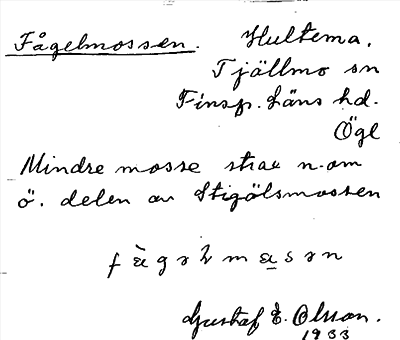 Fågelmossen. Hultema.
Tjällmo sn
Finsp. läns hd.
Ögl
Mindre mosse strax n. om
ö. delen av Stigölsmossen
Gustaf E. Olsson.
1933